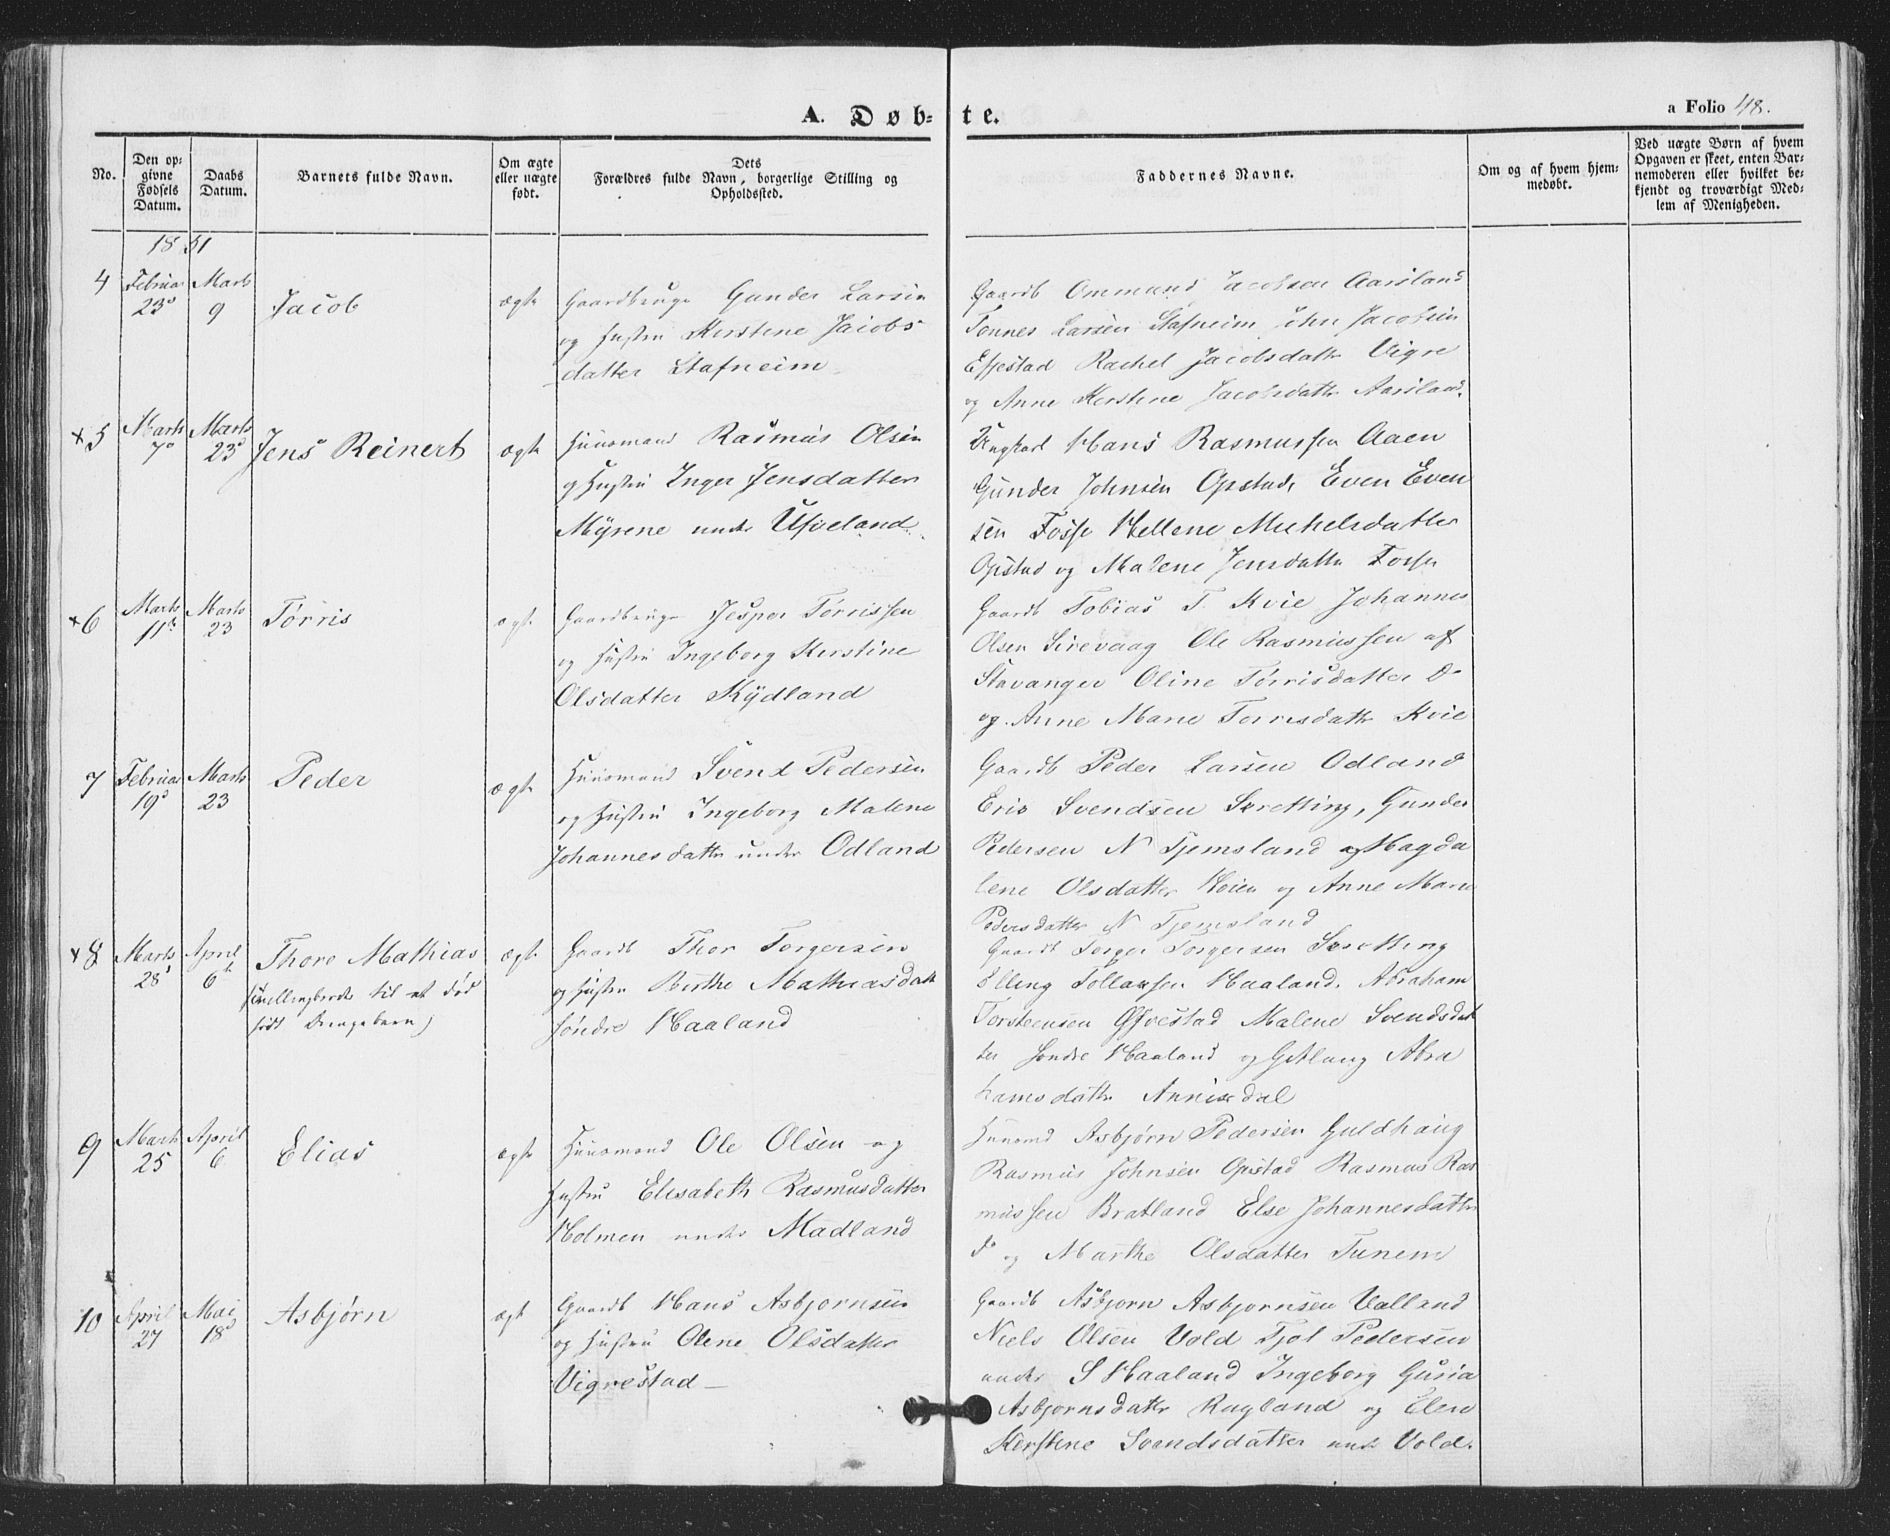 A. Døb-
te.
a Folio 48.
No.
Den op-
givne
Fødsels
Datum.
Daabs
Datum.
Barnets fulde Navn.
Om ægte
eller uægte
født.
Dets
Forældres fulde Navn, borgerlige Stilling og
Opholdssted.
Faddernes Navne.
Om og af hvem hjem-
medøbt.
Ved uægte Børn af hvem
Opgaven er skeet, enten Bar-
nemoderen eller hvilket be-
kjendt og troværdigt Med-
lem af Menigheden.
1851
4
Februar
23d
Marts
9
Jacob
ægte
Gaardbruger Gunder Larsen
og Hustru Kerstene Jacobs
datter Stafneim
Gaardb Ommund Jacobsen Aarsland
Tønnes Larsen Stafneim John Jacobsen
Espestad Rachel Jacobsdatter Vigre
og Anne Kerstene Jacobsdatter Aarsland.
+5
Marts
7d
Marts
23d
Jens Reinert
ægte
Huusmand Rasmus Olsen
og Hustru Inger Jensdatter
Myrene under Ueland.
Ungkarl Hans Rasmussen Aaen
Gunder Johnsen Opstad, Even Even
sen Fosse Hellene Michelsdatter
Opstad og Malene Jensdatter Fosse
+6
Marts
11te
Marts
23
Tørris
ægte
Gaardbruger Jesper Tørrissen
og Hustru Ingeborg Kerstine
Olsdatter Kydland
Gaardb Tobias T. Kvie Johannes
Olsen Sirevaag Ole Rasmussen af
Stavanger Oline Tørrisdatter Do
og Anne Marie Tørrisdatter Kvie
7
Februar
19d
Marts
23
Peder
ægte
Huusmand Svend Pedersen
og Hustru Ingeborg Malene
Johannesdatter under Odland
Gaardb Peder Larsen Odland
Eric Svendsen Skretting, Gunder
Pedersen N Tjemsland og Magda
lene Olsdatter Høien og Anne Marie
Pedersdatter N Tjemsland
+8
Marts
28d
April
6te
Thore Mathias
(tvillingbroder til et død
født Drengebarn)
ægte
Gaardb Thor Torgersen
og Hustru Berthe Mathiasdatt
søndre Haaland
Gaardb Torger Torgersen Skretting
Elling Tollaksen Haaland, Abraham
Torsteensen Øvestad Malene Svendsdat
ter søndre Haaland og Gitlaug Abra
hamsdatter Annisdal
9
Marts
25
April
6
Elias
ægte
Huusmand Ole Olsen og
Hustru Elisabeth Rasmusdatter
Holmen under Madland
Huusmd Asbjørn Pedersen Guldhaug
Rasmus Johnsen Opstad Rasmus Ras
mussen Bratland Else Johannesdatter
Do og Marthe Olsdatter Tunem
10
April
27
Mai
18d
Asbjørn
ægte
Gaardb Hans Asbjornsen
og Hustru Olene Olsdatter
Vigrestad
Gaardb Asbjorn Asbjornsen Valland
Niels Olsen Vold Tjøl Pedersen
under S Haaland Ingeborg Guria
Asbjornsdatter Rugland og Elen
Kerstene Svendsdatter und Vold.